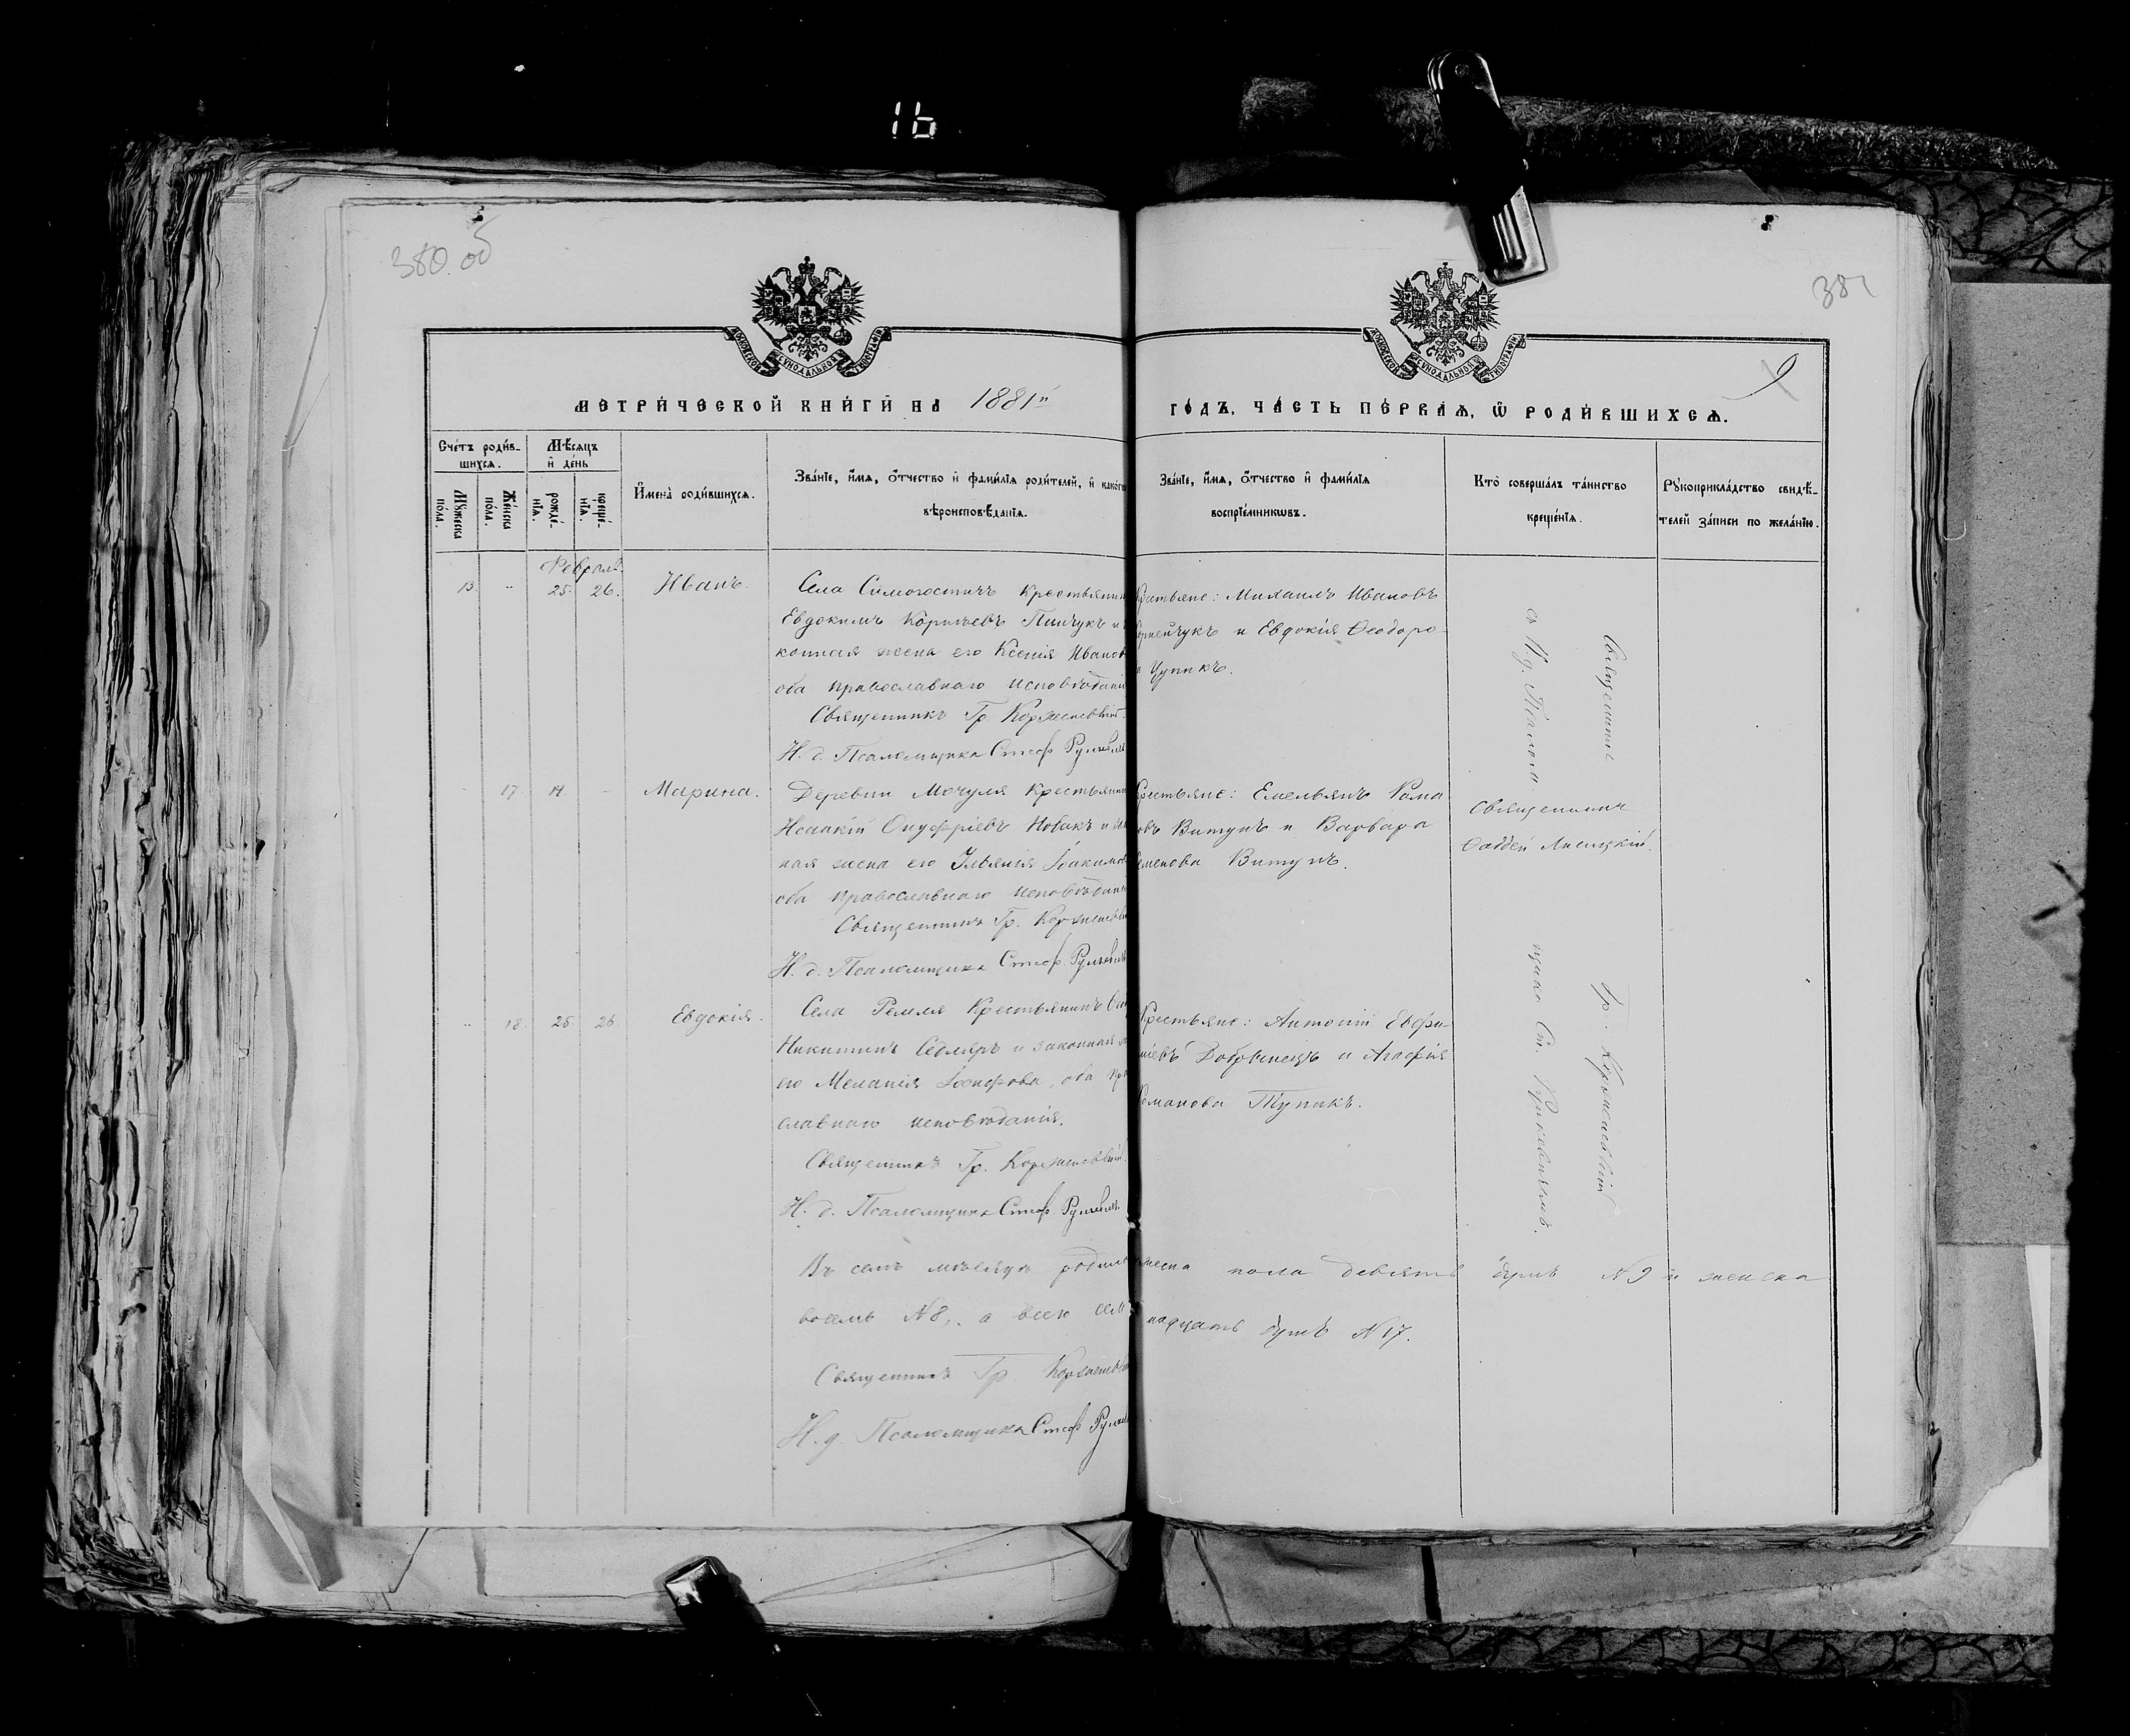 16
380 об
381
9
МОСКОВСКОЙ СѴНОДАЛЬНОЙ ТИПОГРАФІИ
МОСКОВСКОЙ СѴНОДАЛЬНОЙ ТИПОГРАФІИ
МЕТРИ́ЧЕСКОЙ КНИ́ГИ НА 1881й
ГО́ДЪ, ЧА́СТЬ ПЕ́РВАѦ, Ѿ РОДИ́ВШИХСѦ.
Сче́тъ роди́в-
шихсѧ.
Мѣ́сѧцъ
и де́нь
Мꙋ́жеска по́ла.
Же́нска по́ла.
рожде́-
нїѧ.
креще́-
нїѧ.
Имена̀ роди́вшихсѧ.
Зва́нїе, и́мѧ, о́тчество и фами́лїѧ роди́телей, и како́гѡ
вѣроисповѣ́данїѧ.
Зва́нїе, и́мѧ, о́тчество и фами́лїѧ
воспрїе́мникѡвъ.
Кто̀ соверша́лъ та́инство
креще́нїѧ.
Рꙋкоприкла́дство свидѣ́-
телей за́писи по жела́нїю.
Февраль
13. 25. 26. Иванъ. Села Симоностичъ Крестьянин
Евдокимъ Корнѣевъ Пинчукъ и
конная жена его Ксенія Иванов
оба православнаго исповѣданія
Священникъ Гр. Корженевскій.
И. д. Псаломщика Стеф.
Крестьяне: Михаилъ Ивановъ
Корнейчукъ и Евдокія Ѳеодоро-
Цупикъ.
17 14 Марина. Деревни Мочуля Крестьянин
Исаакій Онуфріевъ Новакъ и
ная жена его Ульянія Іоакимов
оба православнаго исповѣданія
Священникъ Гр. Корженевскій
И. д. Псаломщика Стеф.
Крестьяне: Емельянъ Рома
овъ Витунъ и Варвара
Семенова Витунъ.
Священникъ
Ѳаддей Лисицкій.
18 25 26 Евдокія. Села Ремля Крестьянинъ
Никитинъ Седляръ и законная
его Меланія Іосифова, оба пра
славнаго исповѣданія.
Священникъ Гр. Корженевскій.
И. д. Псаломщика Стеф.
Крестьяне: Антоній Евфи-
міевъ Добрынецъ и Агафія
Романова Тупикъ.
Священникъ Гр. Корженевскій
съ И. д. Псалом
щика Ст.
Въ семъ мѣсяцѣ родилось
мужеска пола девять душъ N 9 и женска
восемь N 8, а всего сем
надцать душъ N 17.
Священникъ Гр. Корженевскій
И. д. Псаломщика Стеф